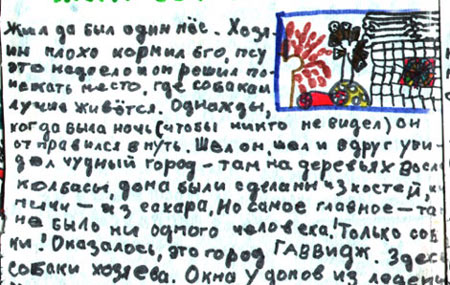 Жил да был один пёс. Хозя-
ин плохо кормил его, псу
это надоело и он решил по-
искать место, где собакам
лучше живётся. Однажды,
когда была ночь (чтобы никто не видел) он
отправился в путь. Шел он, шел и вдруг уви-
дел чудный город - там на деревьях росли
колбасы, дома были сделаны из костей,
- из сахара. Но самое главное - та
не было ни одного человека! Только соб
ки! Оказалось, это город ГАВВИДЖ. Здесь
собаки хозяева. Окна у домов из леден